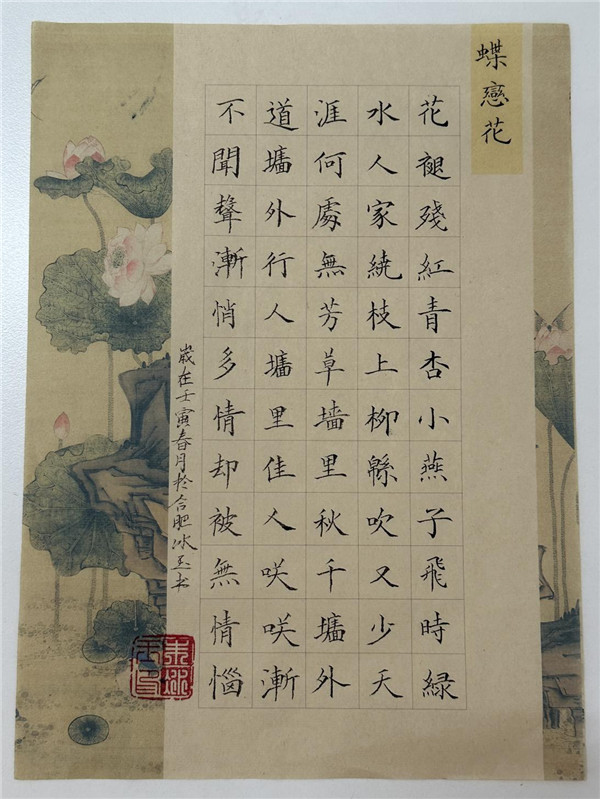 蝶戀花
花褪殘紅青杏小燕子飛時緑
水人家繞枝上柳緜吹又少天
涯何處無芳草墻里秋千墻外
道墻外行人墻里佳人咲咲漸
不聞聲漸悄多情却被無情惱
歲在壬寅春月於合肥冰玉书